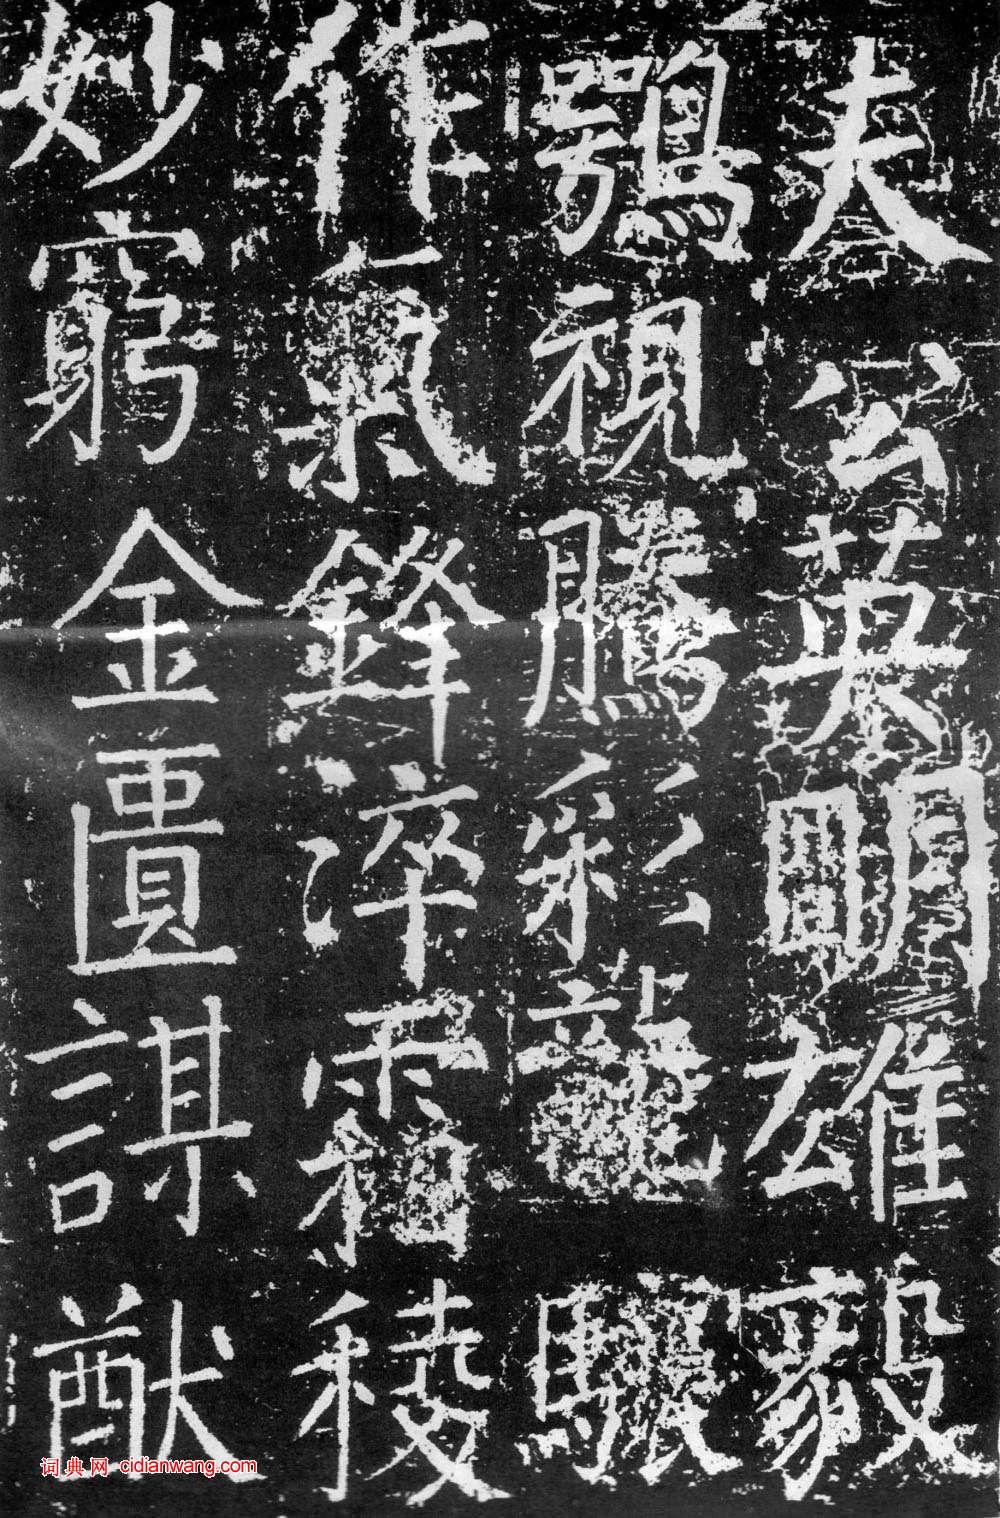 夫公英明雄毅
鶚視騰彩龍驤
作氣鋒淬霜稜
妙窮金匱謀猷
词典网 cidianwang.com